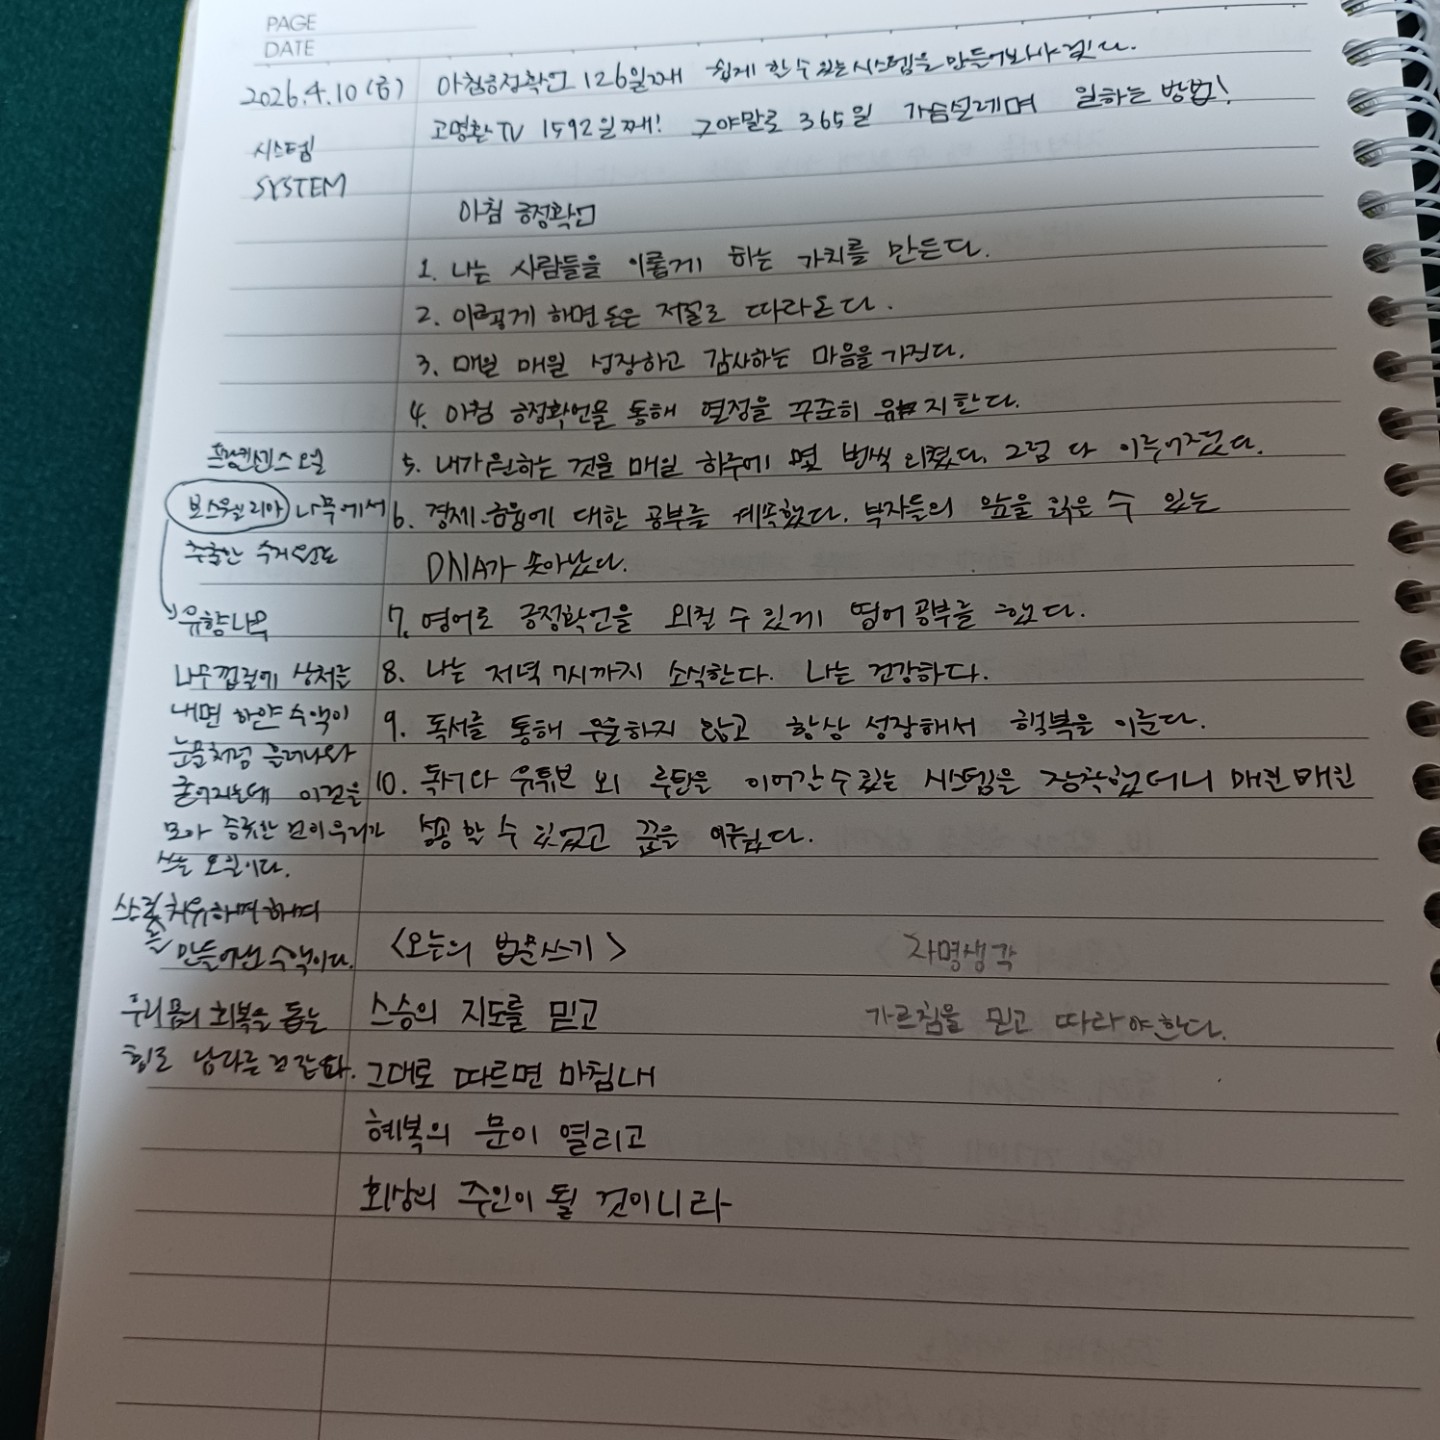 PAGE
DATE
2026.4.10(금)
아침긍정확언 126일째 쉽게 할 수 있는 시스템을 만들어보아야겠다.
고명환TV 1592일째! 그야말로 365일 가슴설레며 일하는 방법!
시스템
SYSTEM
아침 긍정확언
1. 나는 사람들을 이롭게 하는 가치를 만든다.
2. 이렇게 하면 돈은 저절로 따라온다.
3. 매일 매일 성장하고 감사하는 마음을 가진다.
4. 아침 긍정확언을 통해 열정을 꾸준히 유지한다.
5. 내가 원하는 것을 매일 하루에 몇 번씩 외쳤다. 그럼 다 이루어진다.
6. 경제.금융에 대한 공부를 계속했다. 부자들의 앞을 읽은 수 있는
DNA가 솟아났다.
7. 영어로 긍정확언을 외칠 수 있게 영어 공부를 했다.
8. 나는 저녁 7시까지 소식한다. 나는 건강하다.
9. 독서를 통해 우울하지 않고 항상 성장해서 행복을 이룬다.
10. 독서와 유튜브 외 루틴을 이어갈 수 있는 시스템을 장착했더니 매일 매일
성공할 수 있었고 꿈을 이루었다.
프랑킨센스 오일
보스웰리아 나무에서
추출한 수지
유향나무
나무껍질에 상처를
내면 하얀 수액이
눈물처럼 흘러나와
굳어지는데 이것을
모아 증류한 것이 우리가
쓰는 오일이다.
스스로를 치유하며
만들어낸 수액이다.
우리 몸의 회복을 돕는
힘도 남다른 것 같다.
<오늘의 법문쓰기>
스승의 지도를 믿고
그대로 따르면 마침내
혜복의 문이 열리고
회상의 주인이 될 것이니라
자명생각
가르침을 믿고 따라야한다.